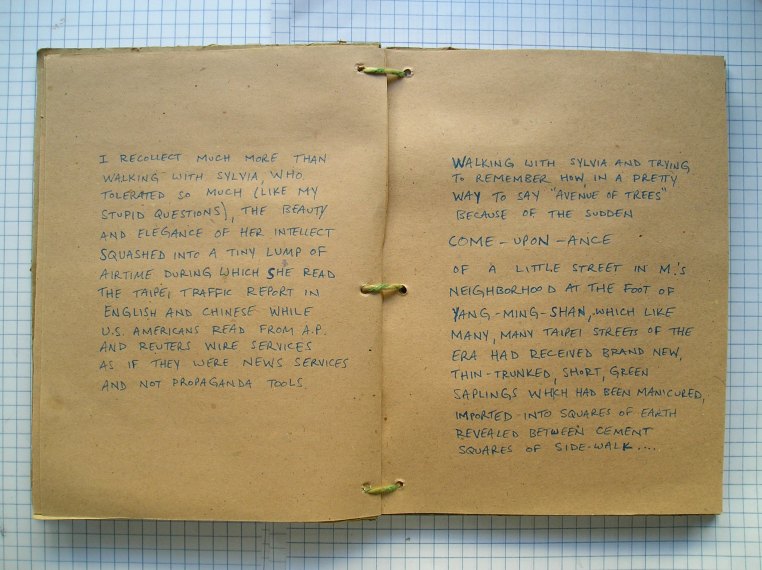 I RECOLLECT MUCH MORE THAN
WALKING WITH SYLVIA, WHO
TOLERATED SO MUCH (LIKE MY
STUPID QUESTIONS), THE BEAUTY
AND ELEGANCE OF HER INTELLECT
SQUASHED INTO A TINY LUMP OF
AIRTIME DURING WHICH SHE READ
THE TAIPEI TRAFFIC REPORT IN
ENGLISH AND CHINESE WHILE
U.S. AMERICANS READ FROM A.P.
AND REUTERS WIRE SERVICES
AS IF THEY WERE NEWS SERVICES
AND NOT PROPAGANDA TOOLS.
WALKING WITH SYLVIA AND TRYING
TO REMEMBER HOW, IN A PRETTY
WAY TO SAY "AVENUE OF TREES"
BECAUSE OF THE SUDDEN
COME-UPON-ANCE
OF A LITTLE STREET IN M.'S
NEIGHBORHOOD AT THE FOOT OF
YANG-MING-SHAN, WHICH LIKE
MANY, MANY TAIPEI STREETS OF THE
ERA HAD RECEIVED BRAND NEW,
THIN-TRUNKED, SHORT, GREEN
SAPLINGS WHICH HAD BEEN MANICURED,
IMPORTED INTO SQUARES OF EARTH
REVEALED BETWEEN CEMENT
SQUARES OF SIDE-WALK....